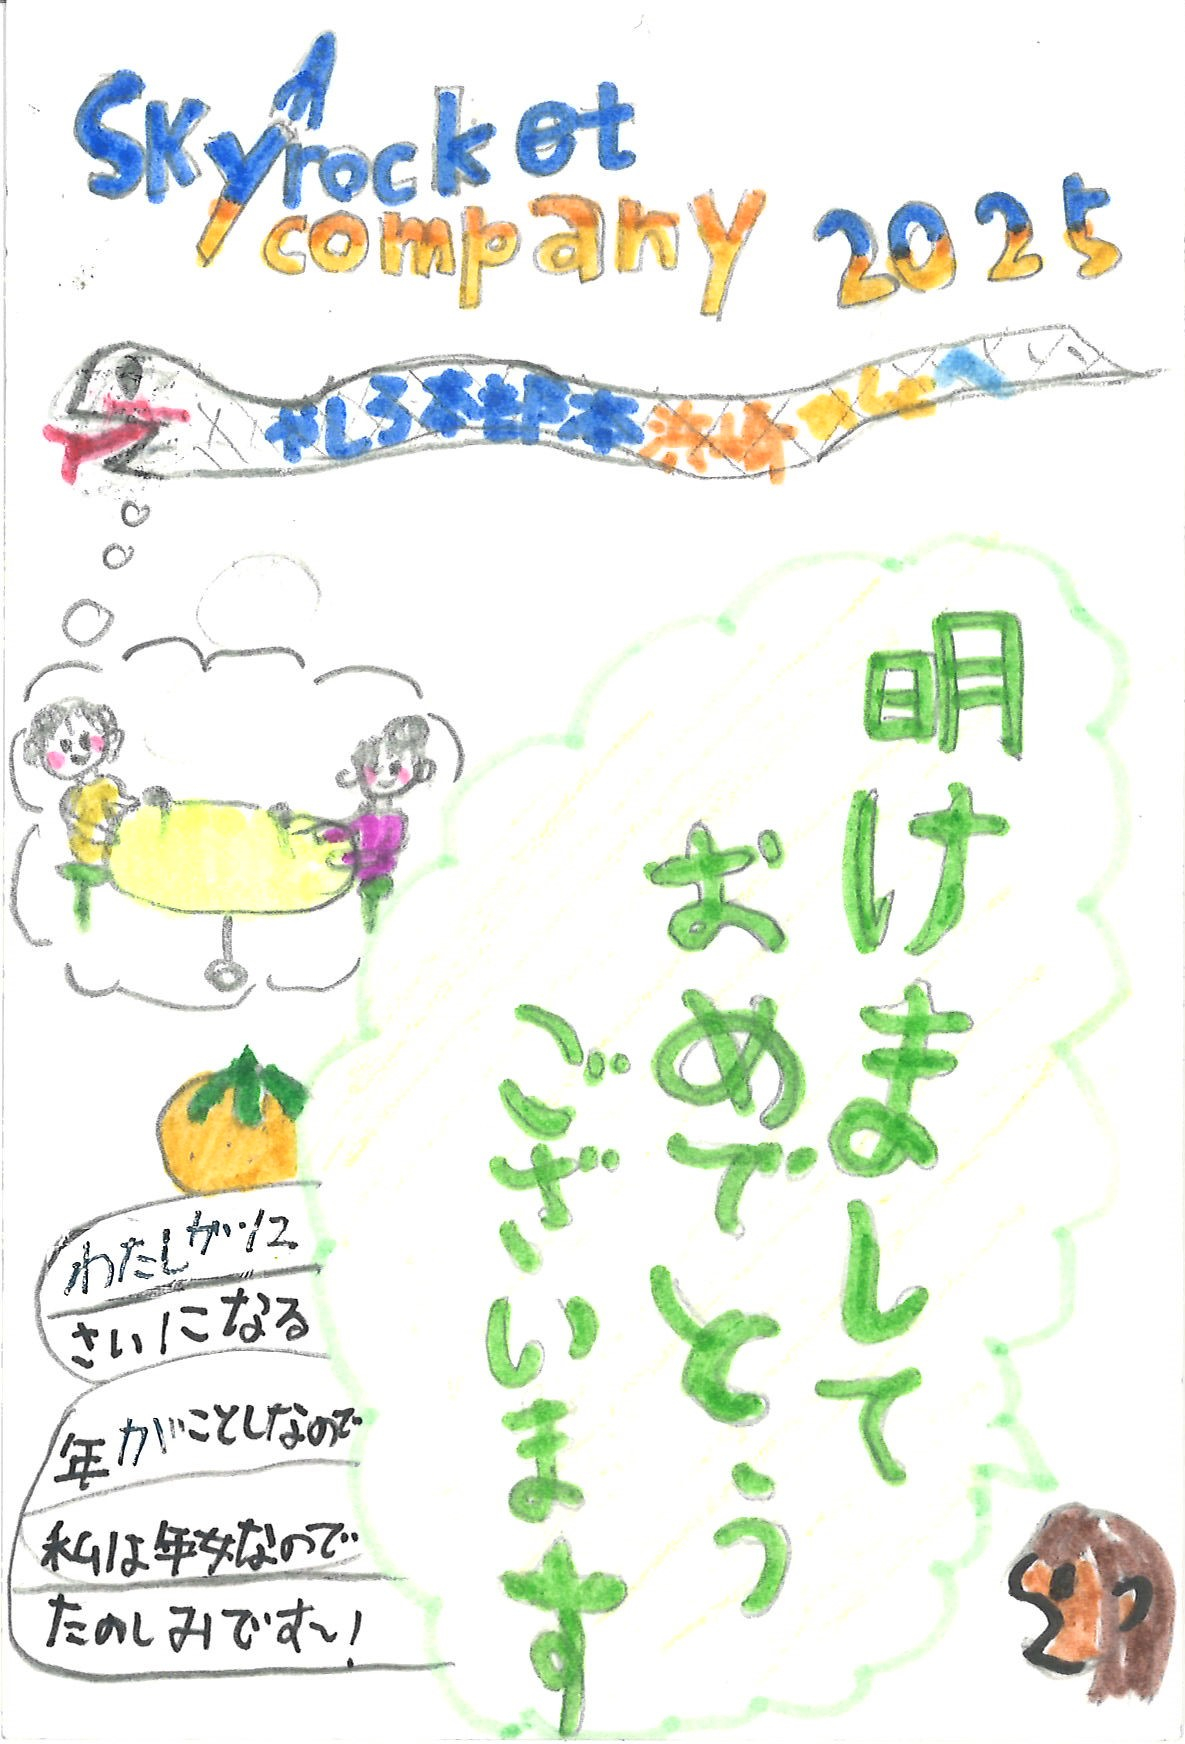 Skyrocket
company 2025
やしろ本部本浜崎さんへ
明けまして
おめでとう
ございます
わたしが12
さいになる
年がことしなので
私は年女なので
たのしみです〜!